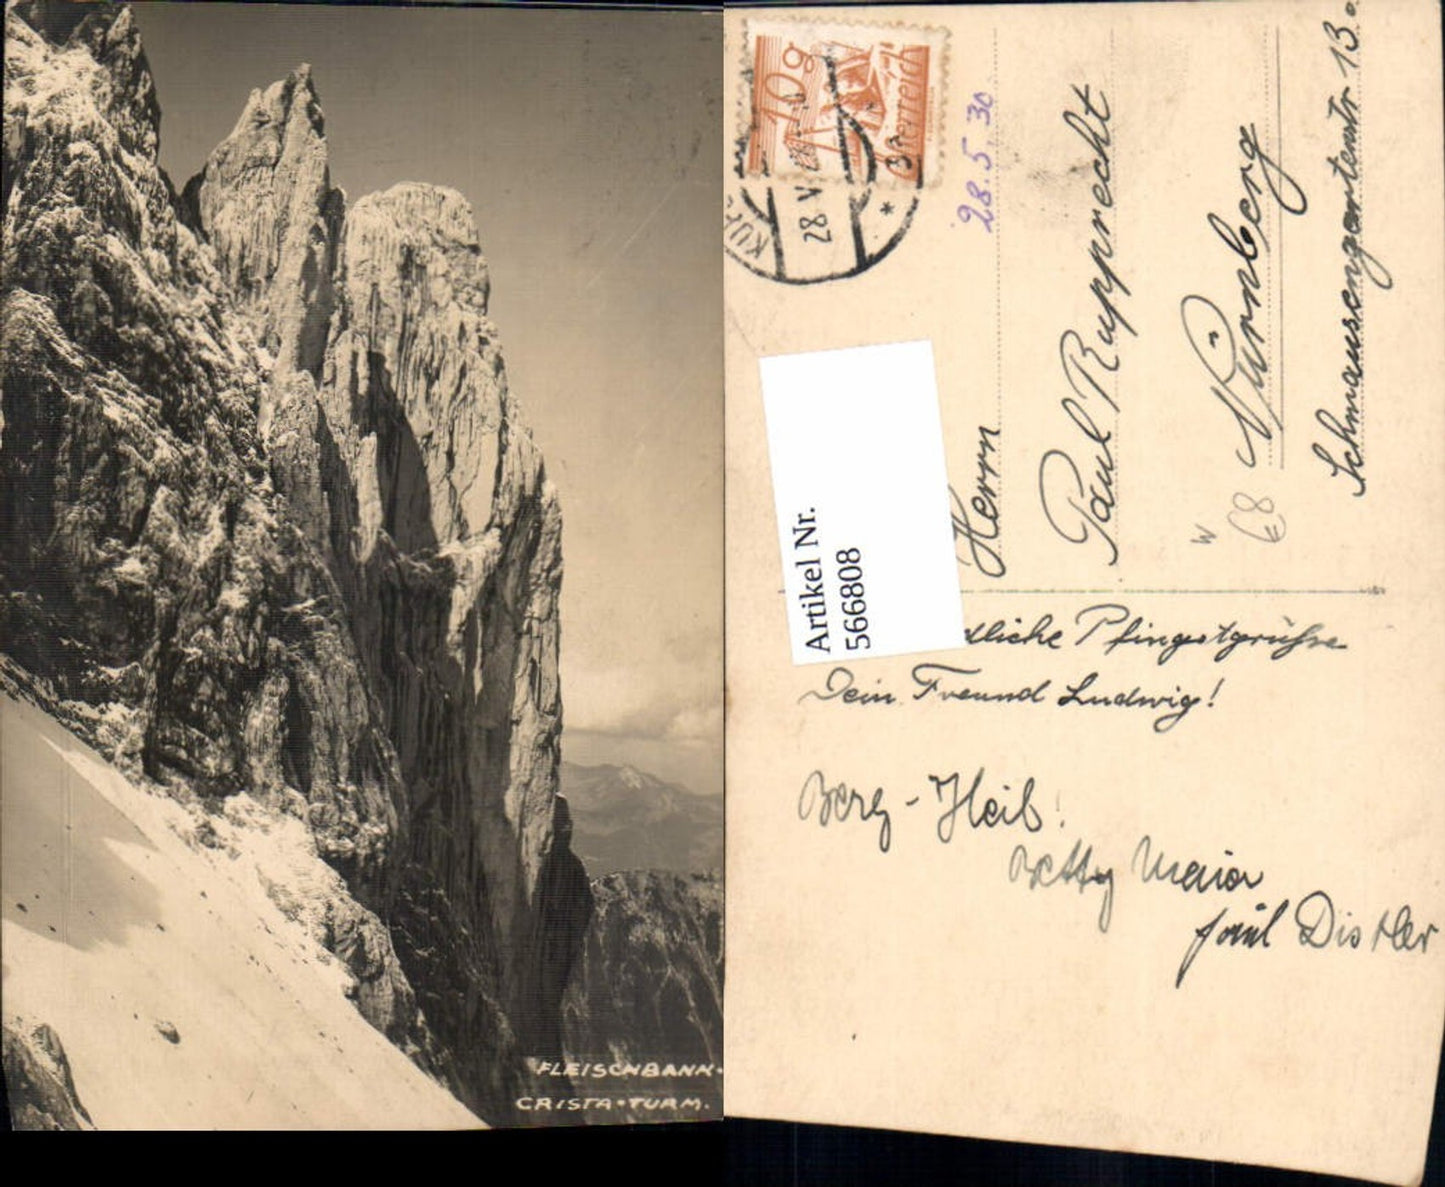 FLEISCHBANK-
CRISTA-TURM.
10g
Österreich
28 V
28.5.30
Herrn
Paul Rupprecht
Nürnberg
Schmausengartenstr 13.
W
€8
Artikel Nr.
566808
dliche Pfingstgrüße
Dein Freund Ludwig!
Berg-Heil!
Betty Maier
Paul Distler